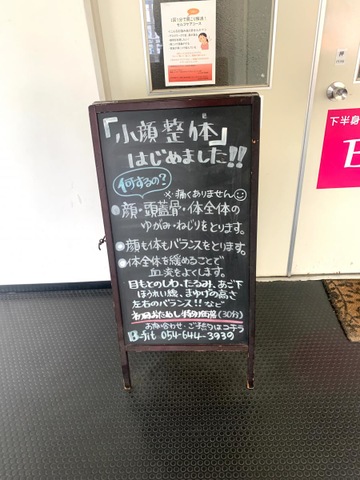 「小顔整体」
はじめました!!
何するの?
※痛くありません
顔・頭蓋骨・体全体の
ゆがみ・ねじりをとります。
顔も体もバランスをとります。
体全体を緩めることで
血流をよくします。
目もとのしわ、たるみ、あご下
ほうれい線、まゆげの高さ
左右のバランス!!など
初回おためし特別価格(30分)
お問い合わせ・ご予約はコチラ
B-fit 054-644-3939
下半身
押